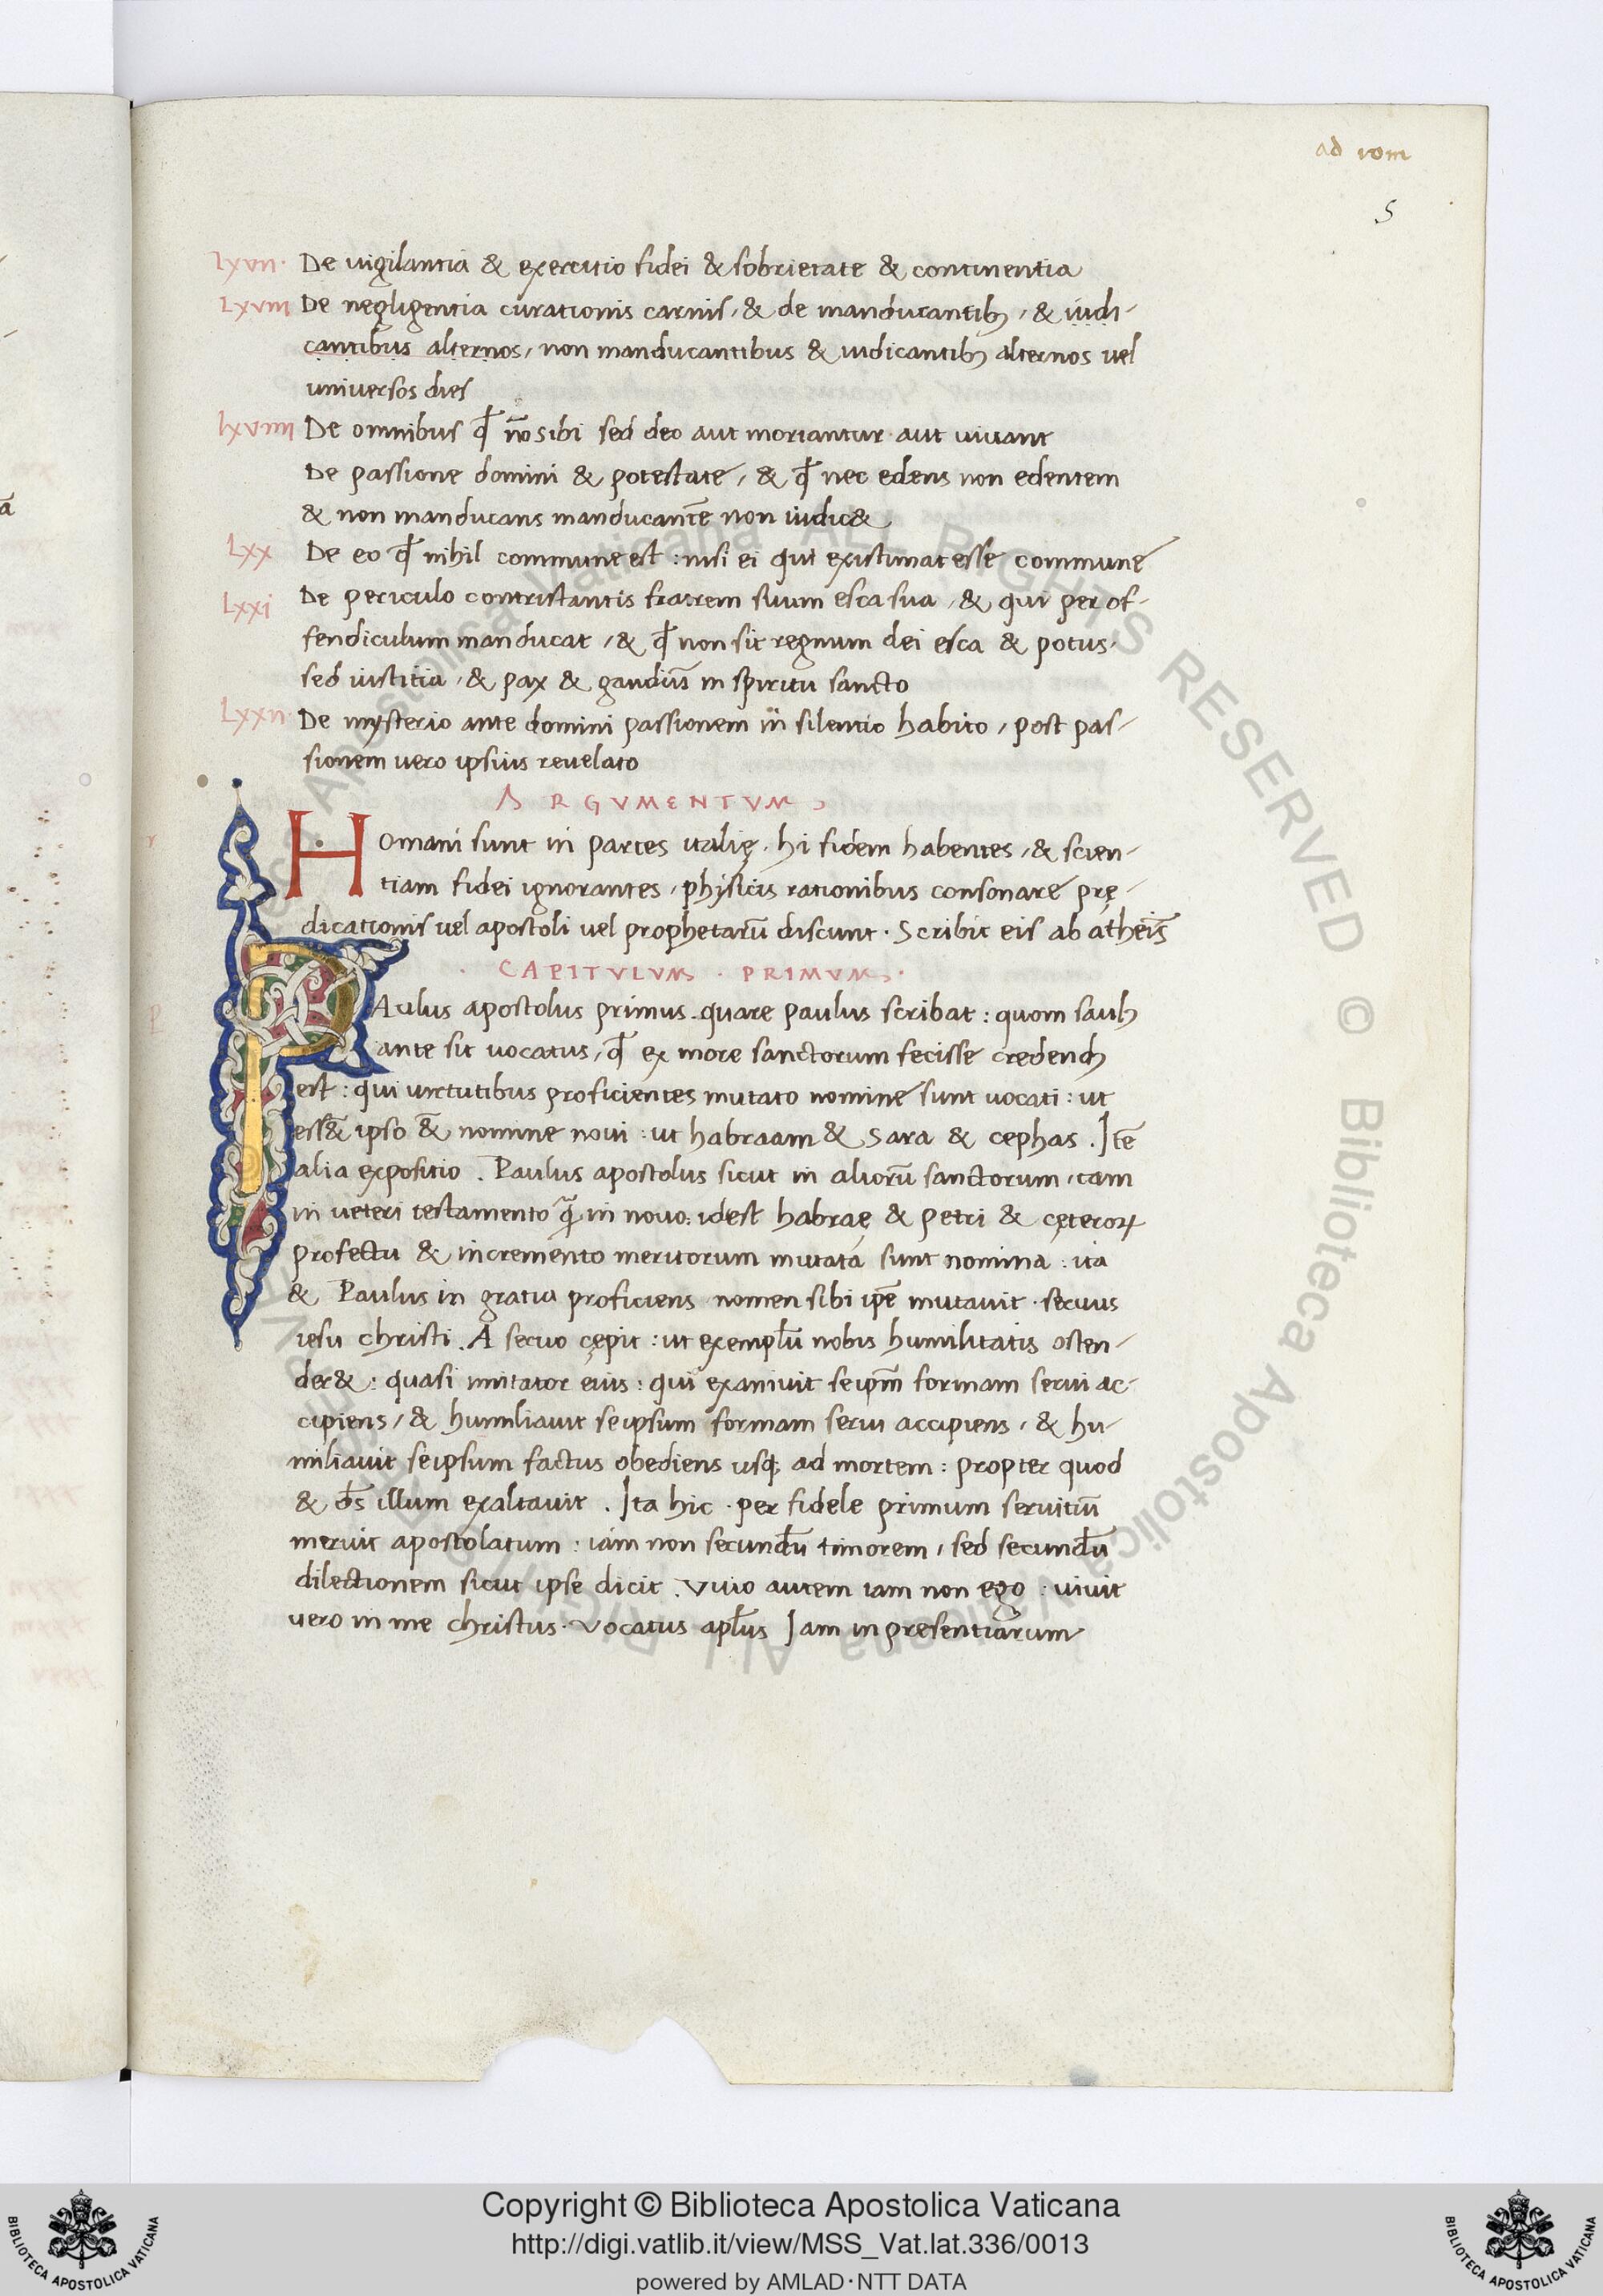 ad rom
5
Lxvii· De vigilantia & exercitio fidei & sobrietate & continentia
Lxviii De negligentia curationis carnis, & de manducantibꝫ, & iudi-
cantibus alternos, non manducantibus & iudicantibꝫ alternos vel
universos dies
lxviiii De omnibus ꝙ nō sibi sed deo aut moriantur aut vivant
De passione domini & potestate, & ꝙ nec edens non edentem
& non manducans manducantē non iudic&
Lxx De eo ꝙ nihil commune est : nisi ei qui existimat esse commune
Lxxi De periculo contristantis fratrem suum esca sua, & qui per of-
fendiculum manducat, & ꝙ non sit regnum dei esca & potus,
sed iustitia, & pax & gaudiū in spiritu sancto
Lxxii· De mysterio ante domini passionem in silentio habito, post pas-
sionem vero ipsius revelato
ARGVMENTVM
r
HOmani sunt in partes italię. hi fidem habentes, & scien-
tiam fidei ignorantes, physicis rationibus consonare prę-
dicationis vel apostoli vel prophetarū discunt. Scribit eis ab atheis
CAPITVLVM · PRIMVM·
P
PAulus apostolus primus. quare paulus scribat : quom saulꝫ
ante sit vocatus, ꝙ ex more sanctorum fecisse credendꝫ
est : qui virtutibus proficientes mutato nomine sunt vocati : ut
ess& ipso & nomine novi : ut habraam & Sara & cephas. Itē
alia expositio. Paulus apostolus sicut in aliorū sanctorum, tam
in veteri testamento ꝗ̃ in novo. idest habraę & petri & cęteroꝝ
profectu & incremento meritorum mutata sunt nomina : ita
& Paulus in gratia proficiens nomen sibi ip̄e mutavit. servus
iesu christi. A servo cępit : ut exemplū nobis humilitatis osten-
der& : quasi imitator eius : qui exanivit seip̄m formam servi ac-
cipiens, & humiliavit seipsum formam servi accipiens, & hu-
miliavit seipsum factus obediens usqꝫ ad mortem : propter quod
& dēs illum exaltavit. Ita hic per fidele primum servitiū
meruit apostolatum : iam non secundū timorem, sed secundū
dilectionem sicut ipse dicit. Vivo autem iam non ego : vivit
vero in me christus. Vocatus apl̄us Iam in presentiarum
Copyright © Biblioteca Apostolica Vaticana
http://digi.vatlib.it/view/MSS_Vat.lat.336/0013
powered by AMLAD·NTT DATA